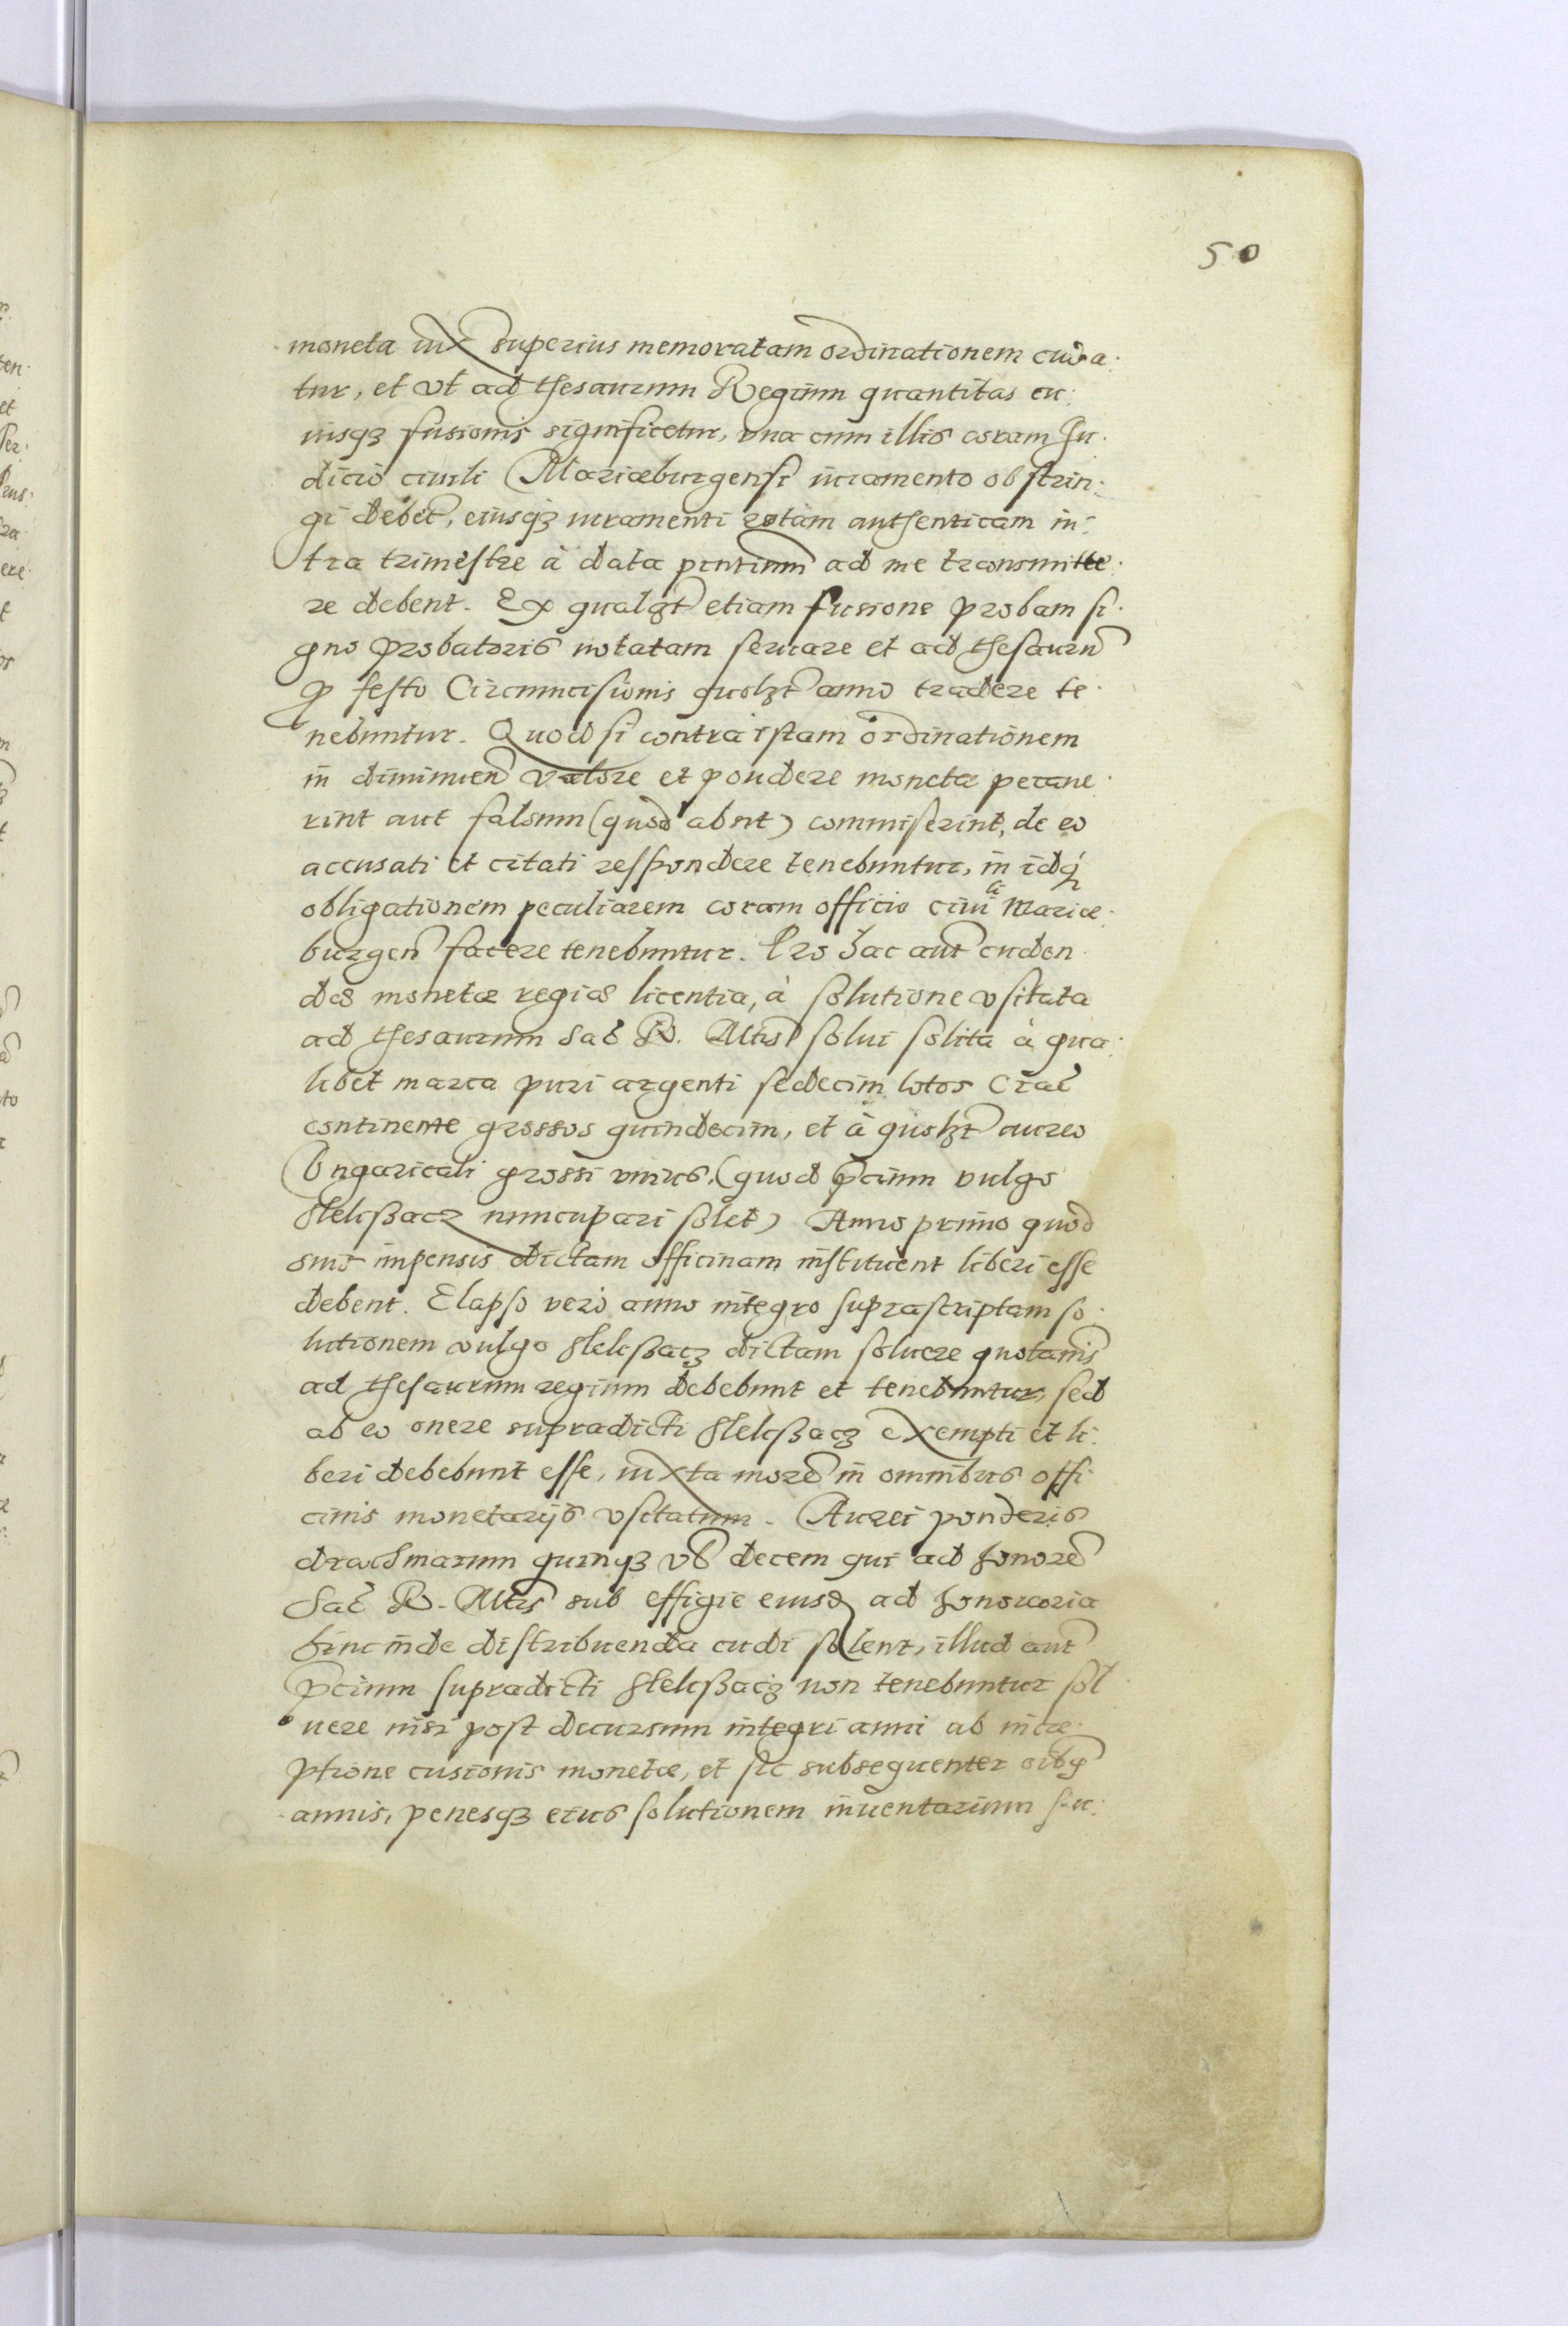 50
moneta iux superius memoratam ordinationem cuda:
tur, et vt ad thesaurum Regium quantitas cu:
iusq3 fusionis significetur, vna cum illis coram Ju:
dicio ciuili Mariæburgensi iuramento obstrin:
gi debet, eiusq3 iuramenti rotam authenticam in:
tra trimestre à data pntium ad me transmitte:
re debent. Ex qualzt etiam fusione probam si:
gno probatoris notatam seruare et ad thesaurũ
p festo Circumcisionis quolzt anno tradere te:
nebuntur. Quod si contra istam ordinationem
in diminuen valore et pondere monetæ peccaue:
rint aut falsum (quod absit) commiserint, de eo
accusati et citati respondere tenebuntur, in idq3
obligationem peculiarem coram officio ciui li Mariæ:
burgen facere tenebuntur. Pro hac aut cuden:
dæ monetæ regiæ licentia, à solutione vsitata
ad thesaurum Sac R. Mtis solui solita à qua:
libet marca puri argenti sedecim lotos Crac
continente grossos quindecim, et à quolzt aureo
Vngaricali grossi vnius, (quod pcium vulgo
slelcßacz nuncupari solet) Anno primo quod
suis impensis dictam officinam instituent liberi esse
debent. Elapso verò anno integro suprascriptam so:
lutionem vulgo slelcßacz dictam soluere quotannis
ad thesaurum regium debebunt et tenebuntur, sed
ab eo onere supradicti slelcßacz exempti et li:
beri debebunt esse, iuxta morē in omnibus offi:
cinis monetarijs vsitatum. Aurei ponderis
drachmarum quinq3 vl decem qui ad honorē
Sac R. Mtis sub effigie eiusd ad honoraria
hinc inde distribuenda cudi solent, illud aut
pcium supradicti slelcßacz non tenebuntur sol
uere nisi post decursum integri anni ab incæ:
ptione cusionis monetæ, et sic subsequenter oibq
annis, penesq3 eius solutionem inuentarium su: